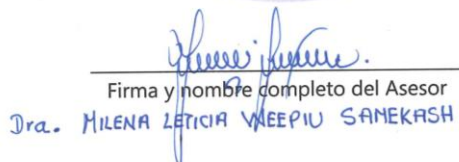 Firma y nombre completo del Asesor
Dra. MILENA LETICIA WEEPIU SAMEKASH